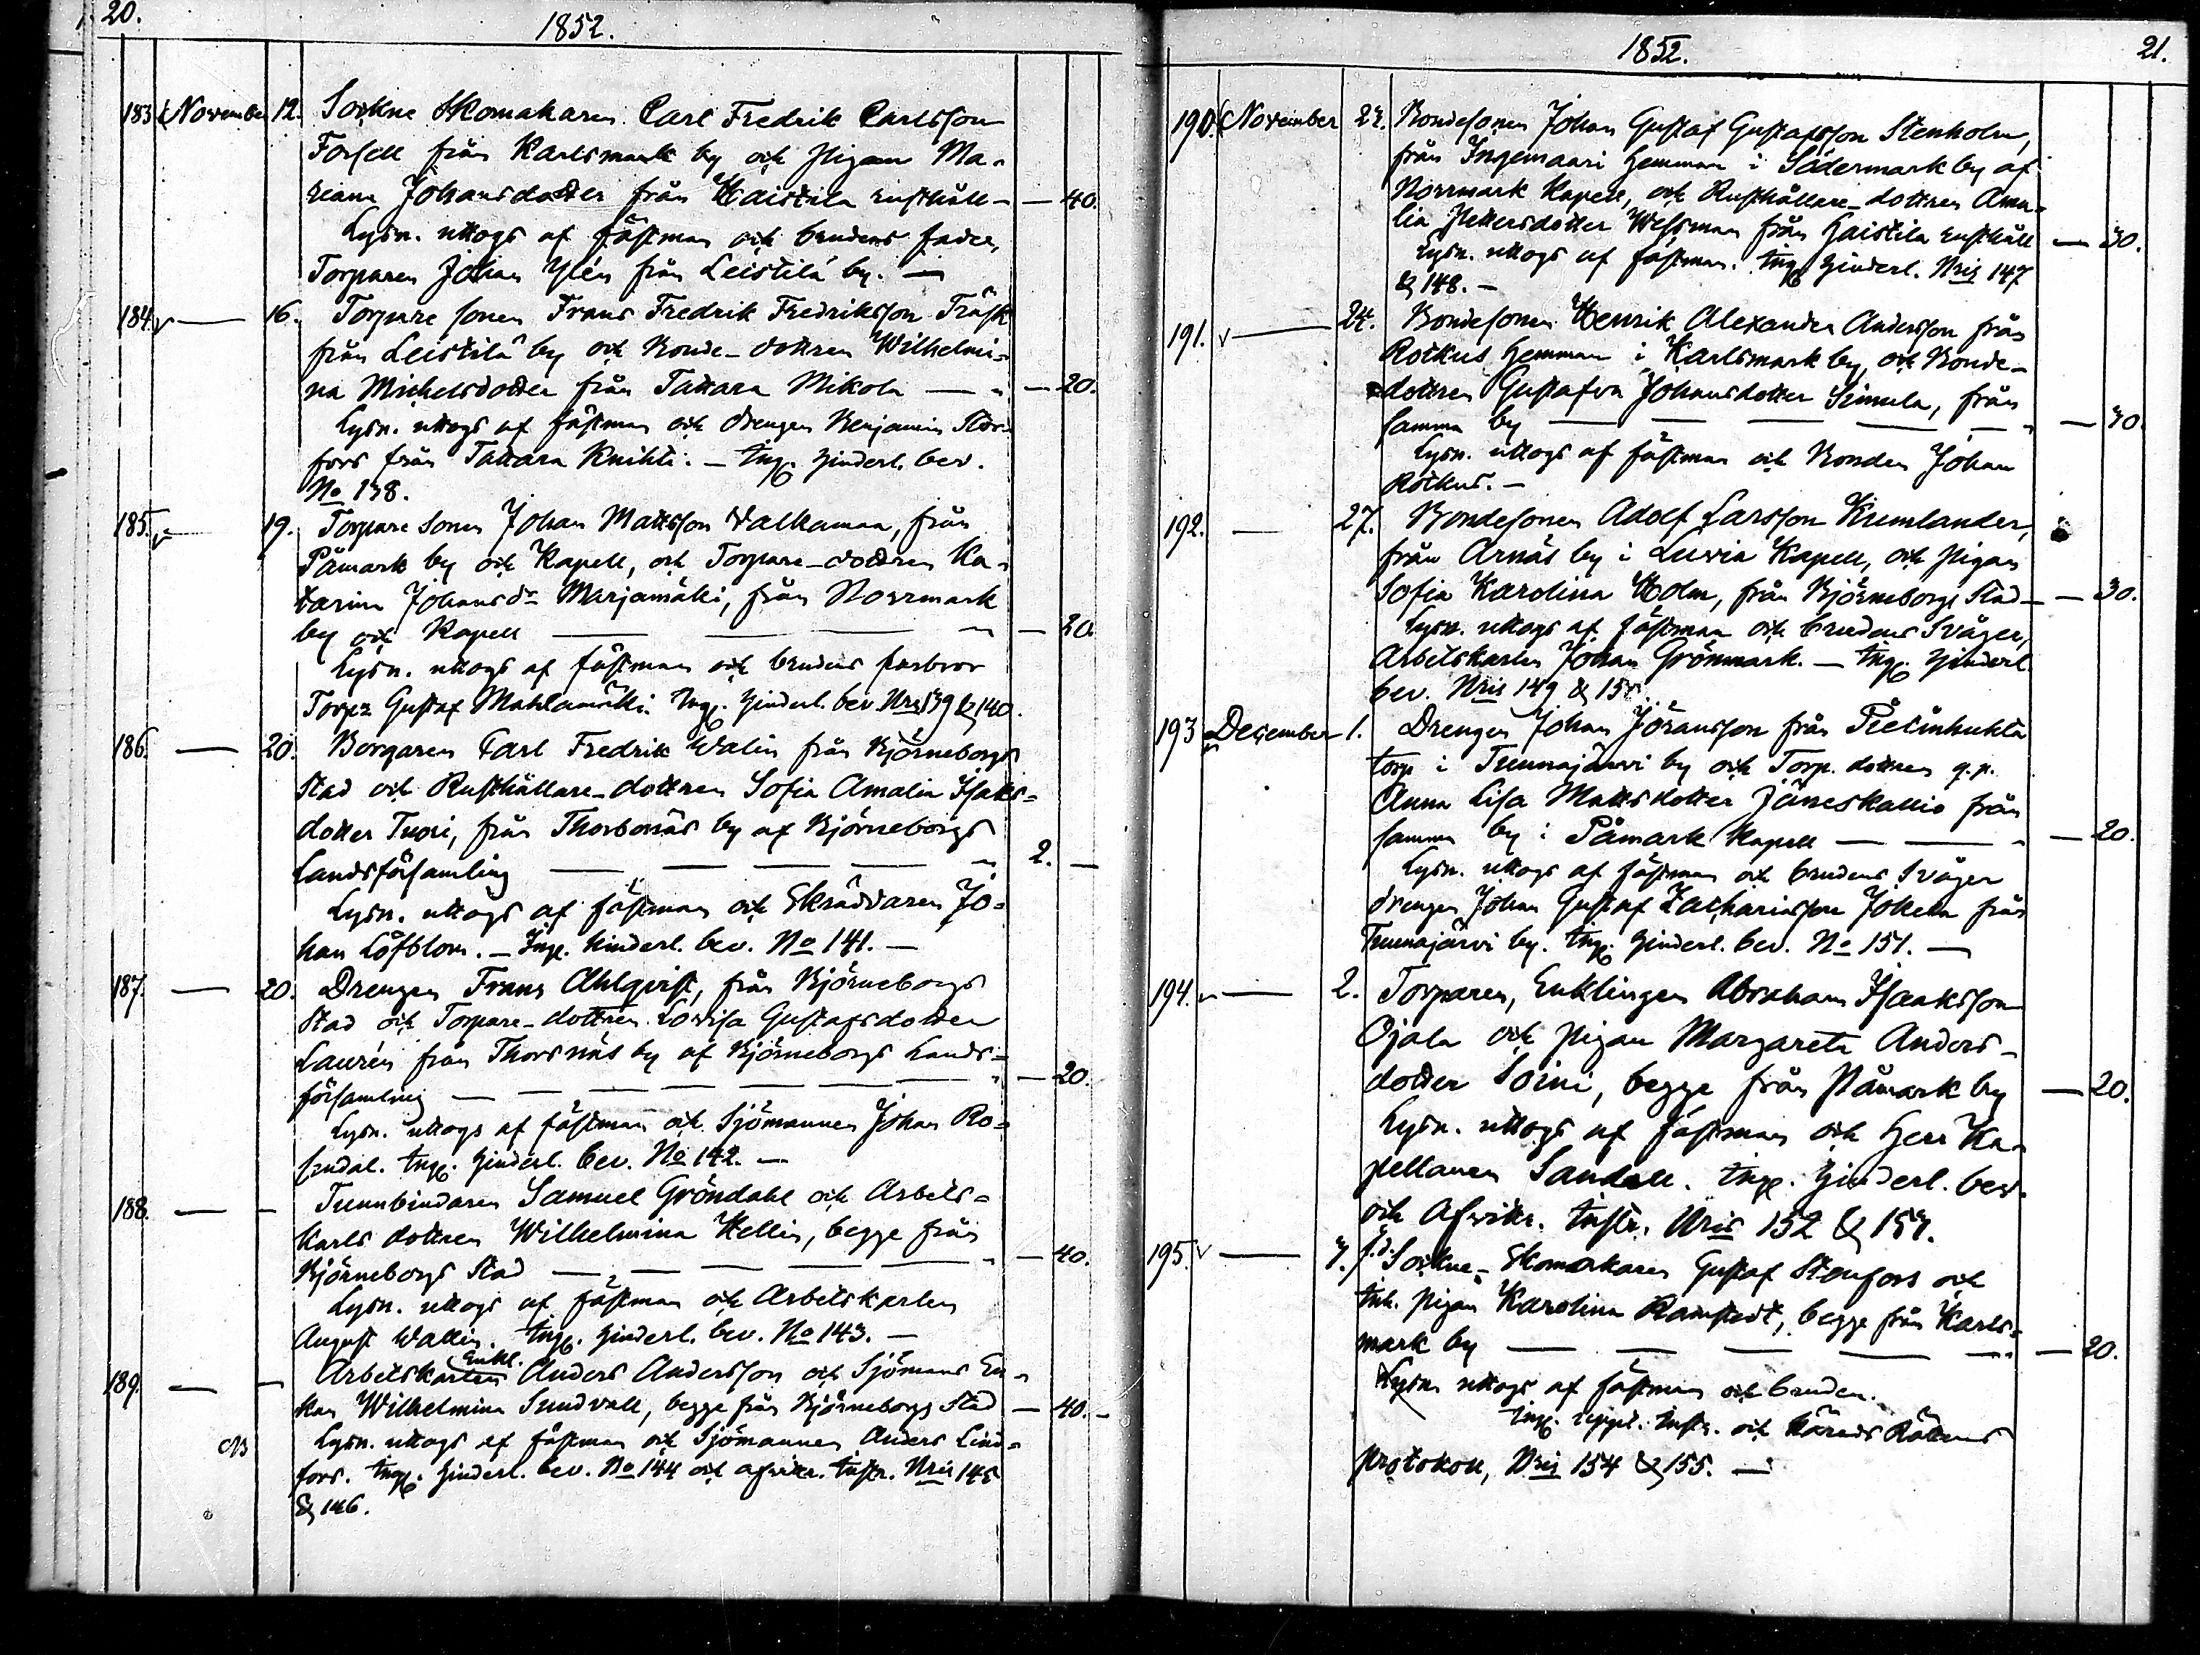 20.
1852.
183 November 12. Sockne Skomakaren Carl Fredrik Carlsson
Forsell från Karlsmark by och Pigan Ma-
riana Johansdotter från Haistila rusthåll - — 40.
Lysn. uttogs af fästman och brudens fader,
Torparen Johan Ylén från Leistilä by. —
184. — 16. Torpare sonen Frans Fredrik Fredriksson Träsk
från Leistilä by och Bonde-dottren Wilhelmi-
na Michelsdotter från Tattara Mikola — " — 20.
Lysn. uttogs af fästman och drengen Benjamin Stor-
fors från Tattara Knihti. — Ing. hinderl. bev.
No 138.
185. — 19. Torpare sonen Johan Mattsson Valkamaa, från
Påmark by och Kapell, och Torpare-dottren Ka-
tarina Johansdr Marjamäki, från Norrmark
by och Kapell — — — " — 20.
Lysn. uttogs af fästman och brudens farbror
Torpr Gustaf Mahlamäki. Ing. hinderl. bev. Nris 139 & 140.
186. — 20. Borgaren Carl Fredrik Walin från Björneborgs
Stad och Rusthållare-dottren Sofia Amalia Isaks-
dotter Tuori, från Thorbonäs by af Björneborgs
Landsförsamling — — — — " 2. —
Lysn. uttogs af fästman och Skräddaren Jo-
han Löfblom. — Ing. hinderl. bev. No 141. —
187. — 20. Drengen Frans Ahlqvist, från Björneborgs
Stad och Torpare-dottren Lovisa Gustafsdotter
Laurén från Thorsnäs by af Björneborgs Lands-
församling — — — — — " — 20.
Lysn. uttogs af fästman och Sjömannen Johan Ro-
sendal. Ing. hinderl. bev. No 142. —
188. — - Tunnbindaren Samuel Gröndahl och Arbets-
karls dottren Wilhelmina Hellin, begge från
Björneborgs Stad — — — — " — 40.
Lysn. uttogs af fästman och Arbetskarlen
August Wallin. Ing. hinderl. bev. No 143. —
Enkl.
189. — - Arbetskarlen Anders Andersson och Sjömans En-
kan Wilhelmina Sundvall, begge från Björneborgs Stad — 40. -
Lysn. uttogs af fästman och Sjömannen Anders Lind-
fors. Ing. hinderl. bev. No 144 och afvittr. Instr. Nris 145
& 146.
1852.
21.
190. November Bondesonen Johan Gustaf Gustafsson Stenholm,
från Ingemaari hemman i Södermark by af
Norrmark Kapell, och Rusthållare-dottren Ama-
lia Pettersdotter Wessman från Haistila rusthåll — 30.
Lysn. uttogs af fästman. Ing. hinderl. Nris 147
& 148. —
191. — 24. Bondesonen Henrik Alexander Andersson från
Rotkus hemman i Karlsmark by, och Bonde-
dottren Gustafva Johansdotter Simula, från
samma by — — — — — " — 30.
Lysn. uttogs af fästman och Bonden Johan
Rotkus. —
192. — 27. Bondesonen Adolf Larsson Krumlander,
från Arnäs by i Luvia Kapell, och Pigan
Sofia Karolina Holm, från Björneborgs Stad - — 30.
Lysn. uttogs af fästman och brudens Svåger,
Arbetskarlen Johan Grönmark. — Ing. hinderl
bev. Nris 149 & 150.
193 December 1. Drengen Johan Jöransson från
torp i Tuunajärvi by och Torp. dottren q.p.
Anna Lisa Mattsdotter Jäneskallio från
samma by i Påmark Kapell — — " — 20.
Lysn. uttogs af fästman och brudens Svåger
drengen Johan Gustaf Zachariasson Jokela från
Tuunajärvi by. Ing. hinderl. bev. No 151. —
194. — 2. Torparen, Enklingen Abraham Isaaksson
Ojala och pigan Margareta Anders-
dotter Soini, begge från Påmark by — 20.
Lysn. uttogs af fästman och Herr Ka-
pellanen Sandell. Ing. hinderl. bev.
och Afvittr. Instr. Nris 152 & 153.
195 — 7. f.d. Sockne-Skomakaren Gustaf Stenfors och
Inh. pigan Karolina Ramstedt, begge från Karls-
mark by — — — — " — 20.
Lysn uttogs af fästman och bruden.
Ing. uppl. Instr. och Härads Rättens
Protokoll, Nris 154 & 155. —